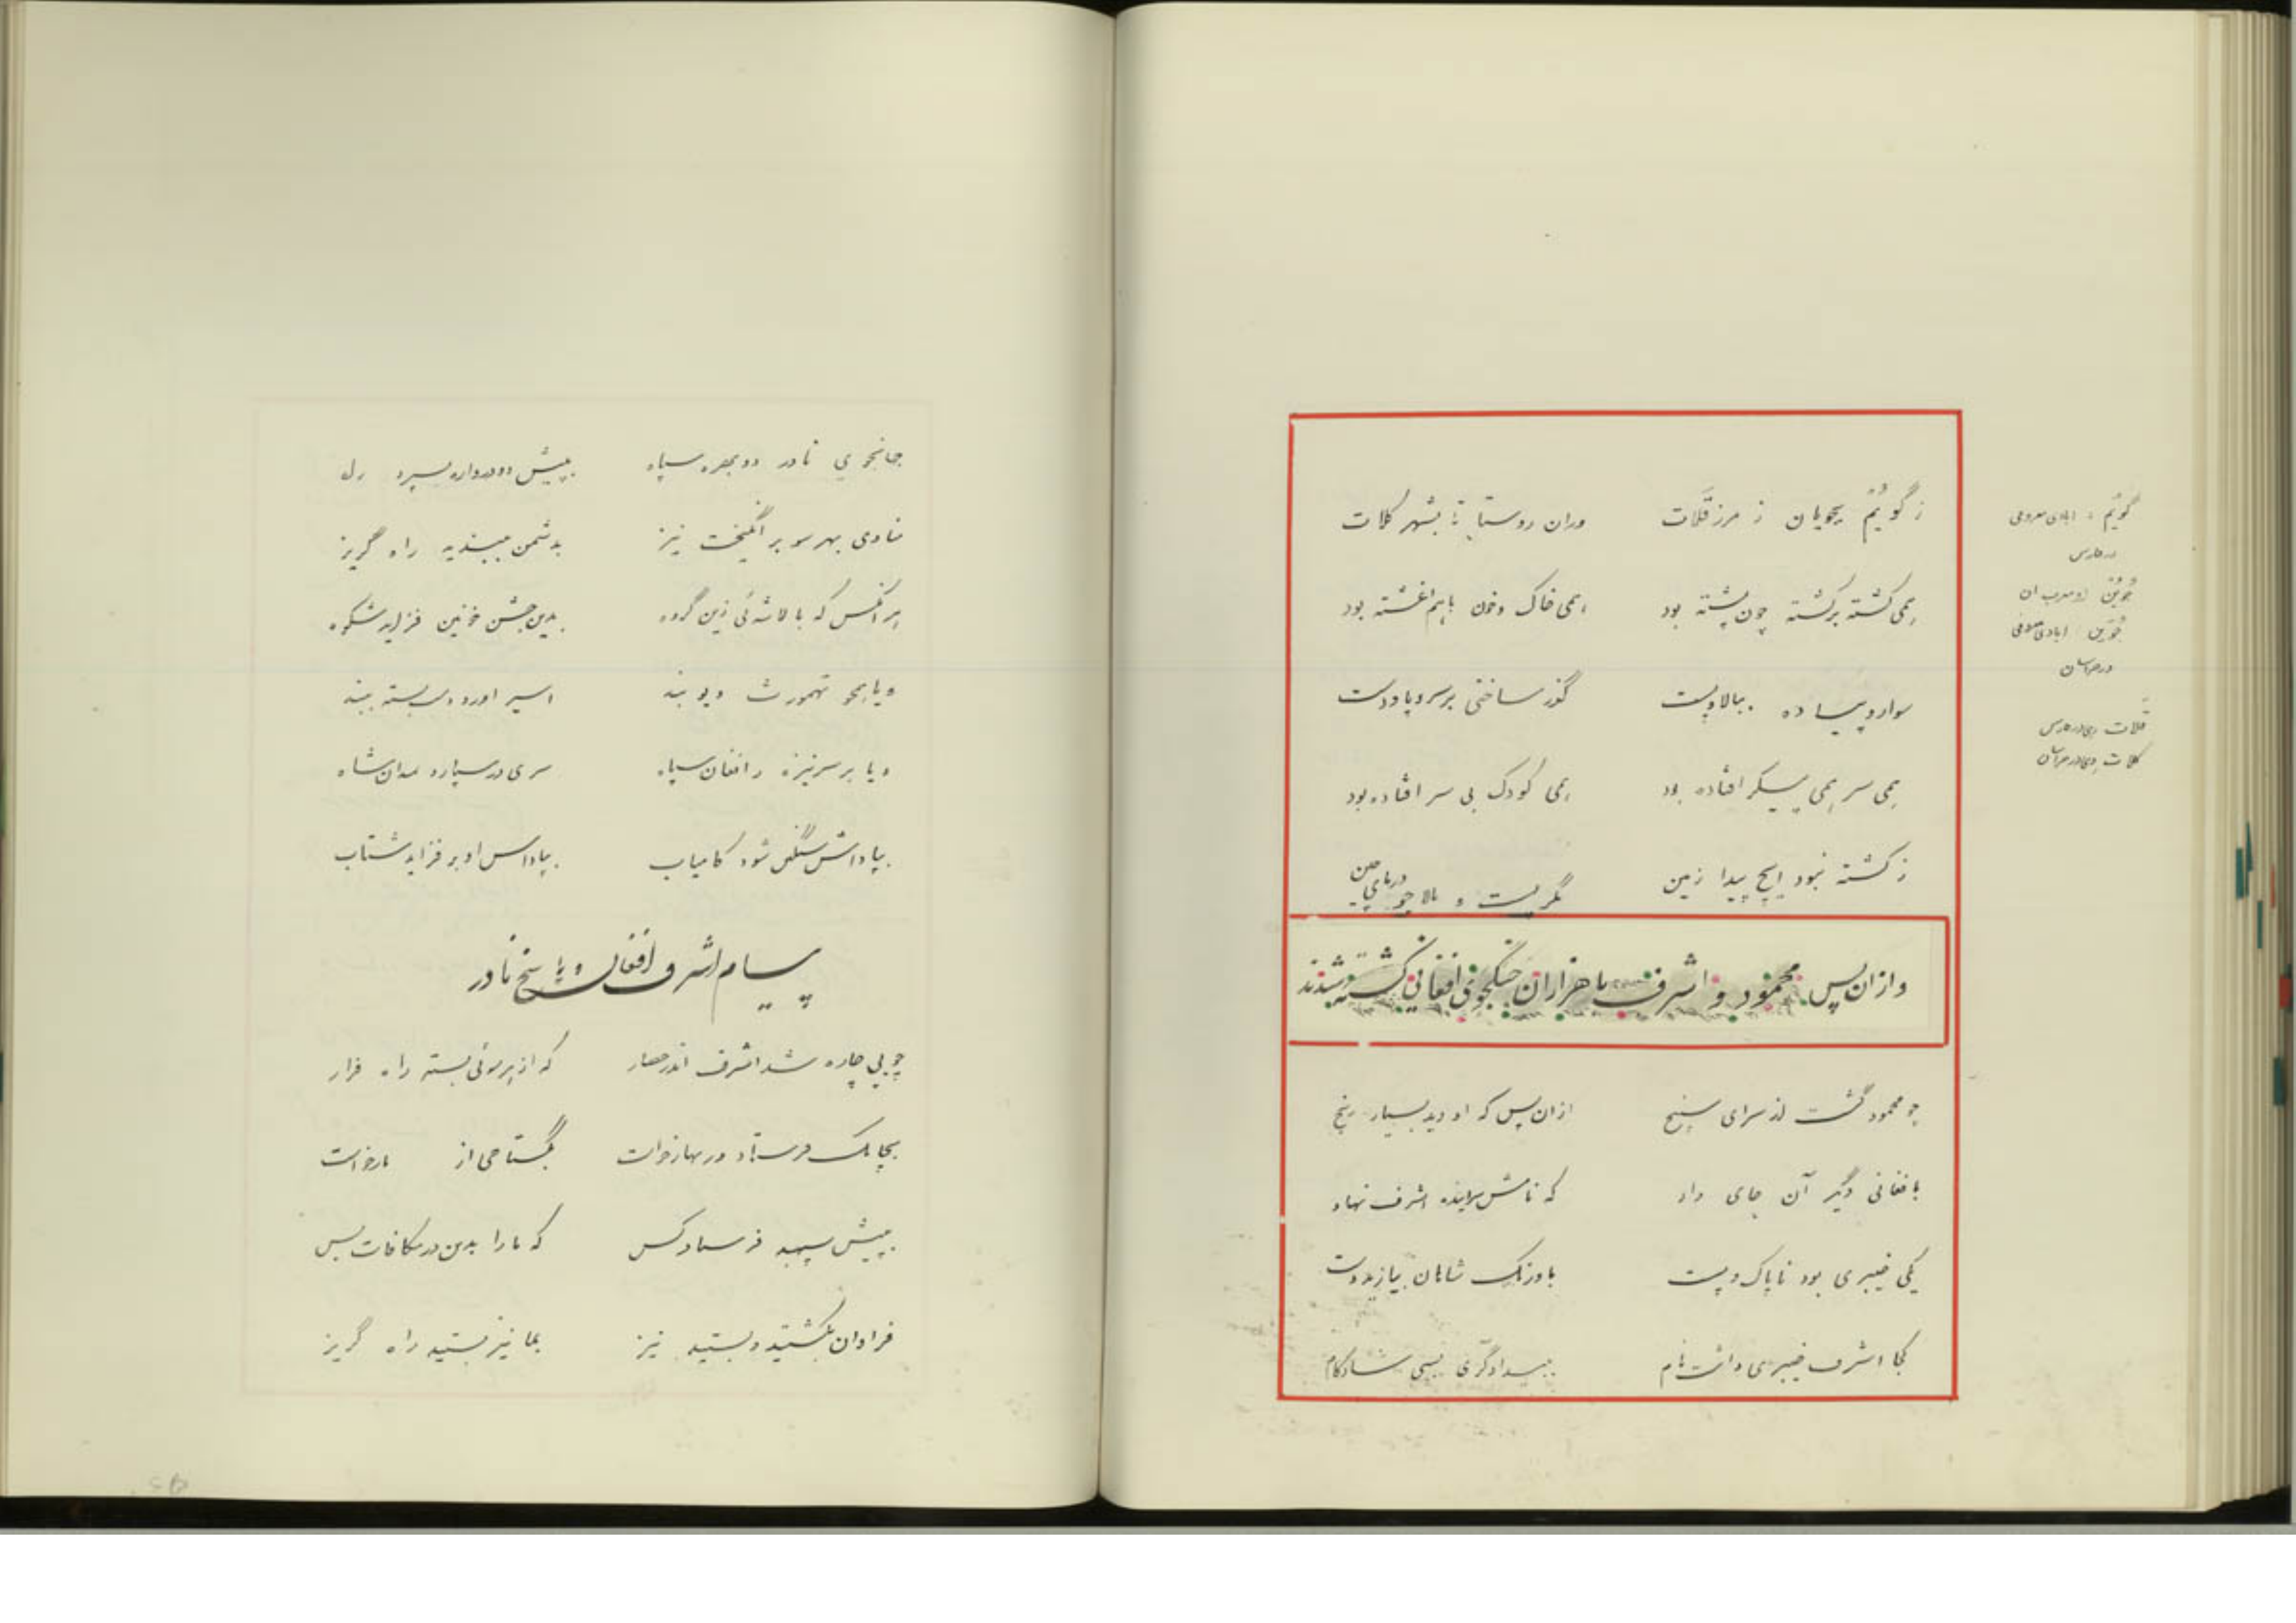 ز گویُم بجویان ز مرز قلات وران روستا تا بشهر کلات
همی کشته برکشته چون پشته بود همی خاک و خون باهم اغشته بود
سوار و پیاده ببالا و پست گذر ساختی بر سر و پا و دست
همی سر همی پیکر افتاده بود همی کودک بی سر افتاده بود
ز کشته نبود ایچ پیدا زمین نگر پست و بالا چو دریای چین
وازان پس محمود و اشرف با هزاران جنگجوی افغانی کشته شدند
چو محمود گشت از سرای سپنج ازان پس که او دید بسیار رنج
بافغانی دگر آن جای داد که نامش اشرف نهاد
یکی خیبری بود ناپاک و پست باورنگ شاهان بیازید دست
کجا اشرف خیبری داشت نام ببیدادگری بسی شادکام
گویم : ابادی معروفی
در فارس
جُوَین ابادی معروفی
در خراسان
قلات در فارس
کلات در خراسان
جهانجوی نادر دو بهره سپاه بپیش دو دروازه بسپرد راه
منادی بهر سو بر انگیخت نیز بدشمن ببندید راه گریز
هر آنکس که با لاشه‌ئی زین گروه بدین جشن خونین فزاید شکوه
ویا همچو تهمورث دیو بند اسیر اورد دست بسته ببند
ویا بر سر نیزه ز افغان سپاه سری در سپارد بمیدان شاه
بپاداش سنگین شود کامیاب بپاداش او بر فزاید شتاب
پیام اشرف افغان و پاسخ نادر
چو بی چاره شد اشرف اندر حصار که از هر سوئی بسته راه فرار
بچابک فرستاد و زنهار خواست بگستاخی از
بپیش سپهبد فرستاد کس که ما را بدین در مکافات بس
فراوان بکشتید و بستید نیز بما نیز بستید راه گریز